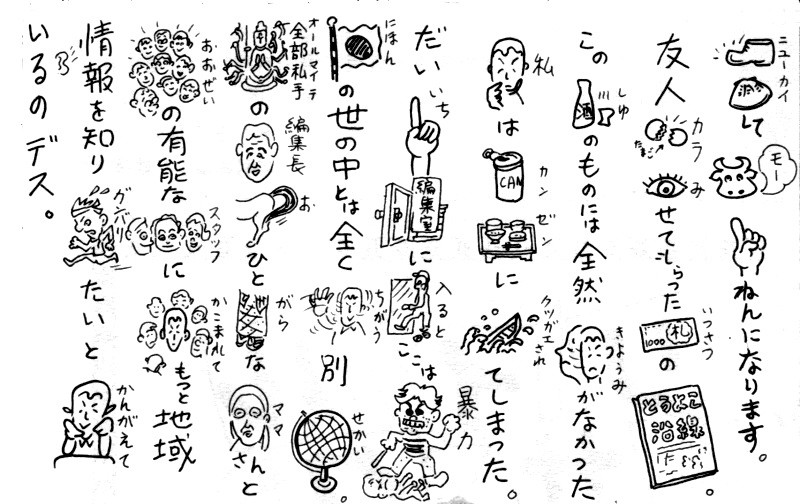 ニューカイして モー ねんになります。
友人カラ たまご みせてもらった いっさつ 1000 札 の とうよこ沿線。
この しゅ 酒 のものには全然 きょうみ がなかった
私は カン CAN ゼン に クツガエされ てしまった。
だいいち 編集室 に 入ると ここは 暴力
にほん の世の中とは全く ちがう 別 せかい。
オールマイテ 全部私手 の 編集長 お ひと がら な ママ さんと
おおぜい の有能な スタッフ に かこまれて もっと地域
情報を知り ガンバリ たいと かんがえて
いるのデス。